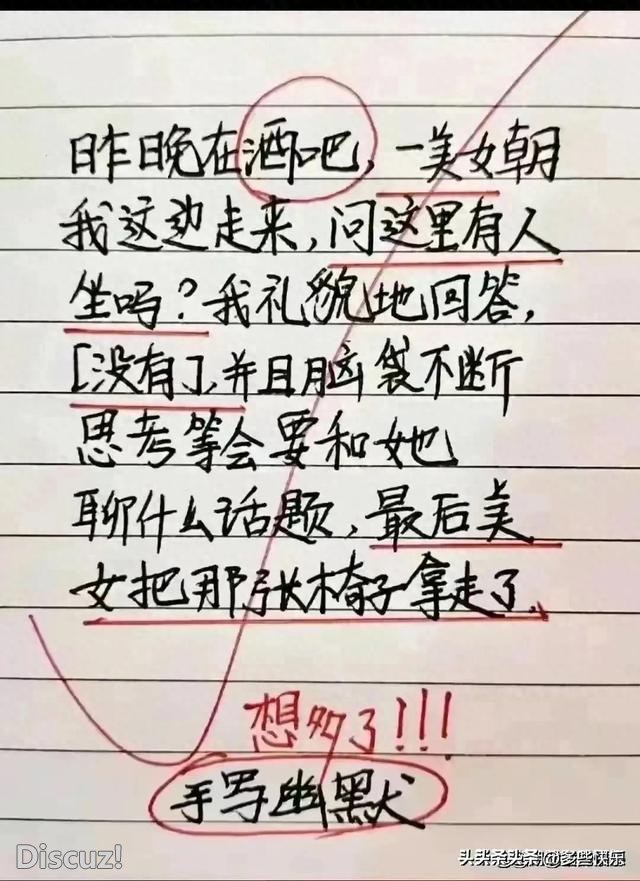 昨晚在酒吧，一美女朝
我这边走来，问这里有人
坐吗？我礼貌地回答，
[没有]，并且脑袋不断
思考等会要和她
聊什么话题，最后美
女把那张椅子拿走了.
想多了!!!
手写幽默
Discuz!